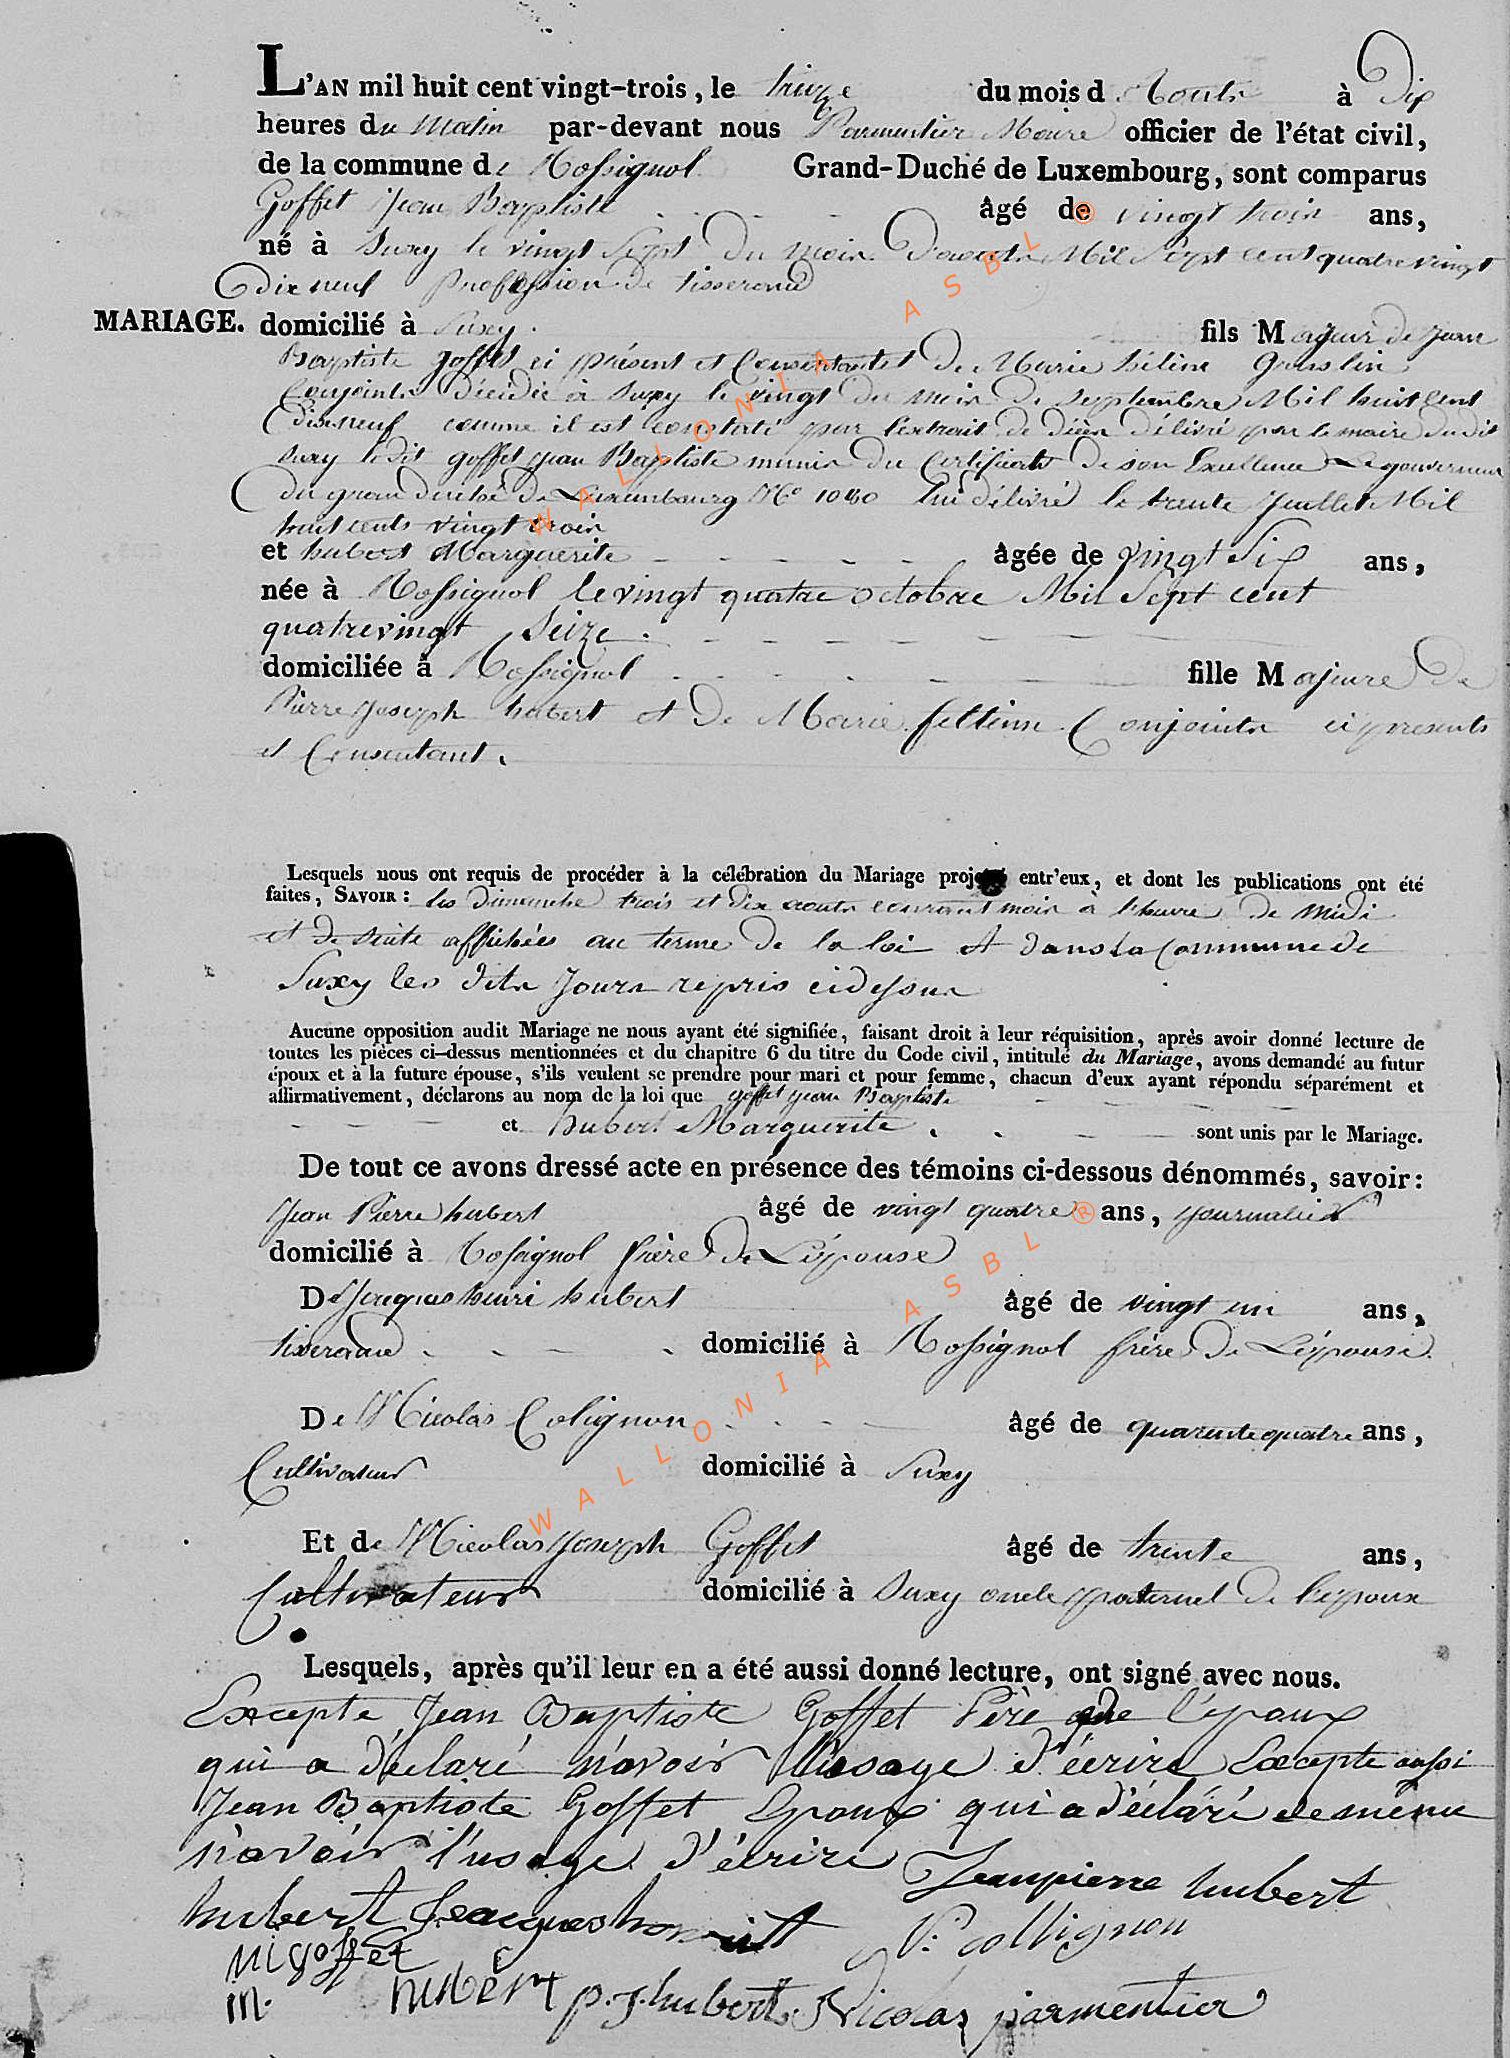 L'AN mil huit cent vingt-trois, le treize du mois d Aoûts à Dix
heures du Matin par-devant nous Parmentier Maire officier de l'état civil,
de la commune de Rossignol Grand-Duché de Luxembourg, sont comparus
Goffet Jean Baptiste âgé de vingt trois ans,
né à Suxy le vingt Sept Du mois D'aouts Mil Sept cent quatre vingt
Dix neuf Proffession de tisserand
MARIAGE. domicilié à Suxy. fils Majeur de Jean
Baptiste goffet ci présent et Consentant et De Marie hélène
Conjoints Décédée à Suxy le vingt Du mois De Septembre Mil huit Cent
Dix neuf comme il est constaté par l'extrait de décès délivré par le maire dudit
Suxy ledit goffet jean Baptiste munis du Certificats De son Excellence Le gouverneur
Du gran duché De Luxembourg No 1040 lui délivré le trente Juillet Mil
huit cents vingt trois
et hubert Marguerite âgée de vingt Six ans,
née à Rossignol le vingt quatre octobre Mil Sept cent
quatre vingt Seize.
domiciliée à Rossignol fille Majeure De
Pierre Joseph hubert et De Marie Conjoints ci presents
et Consentant.
Lesquels nous ont requis de procéder à la célébration du Mariage projeté entr'eux, et dont les publications ont été
faites, SAVOIR : les Dimanche trois et dix aouts courant mois à l'heure De midi
et De suite affichées au terme De la loi et dans la Commune de
Suxy les dits Jours repris cidessus
Aucune opposition audit Mariage ne nous ayant été signifiée, faisant droit à leur réquisition, après avoir donné lecture de
toutes les pièces ci-dessus mentionnées et du chapitre 6 du titre du Code civil, intitulé du Mariage, avons demandé au futur
époux et à la future épouse, s'ils veulent se prendre pour mari et pour femme, chacun d'eux ayant répondu séparément et
affirmativement, déclarons au nom de la loi que goffet jean Baptiste
et hubert Marguerite. sont unis par le Mariage.
De tout ce avons dressé acte en présence des témoins ci-dessous dénommés, savoir:
Jean Pierre hubert âgé de vingt quatre ans, journalier
domicilié à Rossignol frère De L'épouse
De Jacques henri hubert âgé de vingt un ans,
tisserand domicilié à Rossignol frère De L'épouse.
De Nicolas Colignon âgé de quarente quatre ans,
Cultivateur domicilié à Suxy
Et de Nicolas Joseph Goffet âgé de trente ans,
Cultivateur domicilié à Suxy oncle paternel De l'epoux
Lesquels, après qu'il leur en a été aussi donné lecture, ont signé avec nous.
Excepte Jean Baptiste Goffet Père de l'époux
qui a déclaré n'avoir l'usage d'écrire Excepte aussi
Jean Baptiste Goffet Epoux qui a déclaré de même
n'avoir l'usage d'écrire
Jeanpierre hubert
hubert Jeacques
N: collignon
ni goffet
m. hubert p. J. hubert. Nicolas parmentier
WALLONIA ASBL ®
WALLONIA ASBL ®